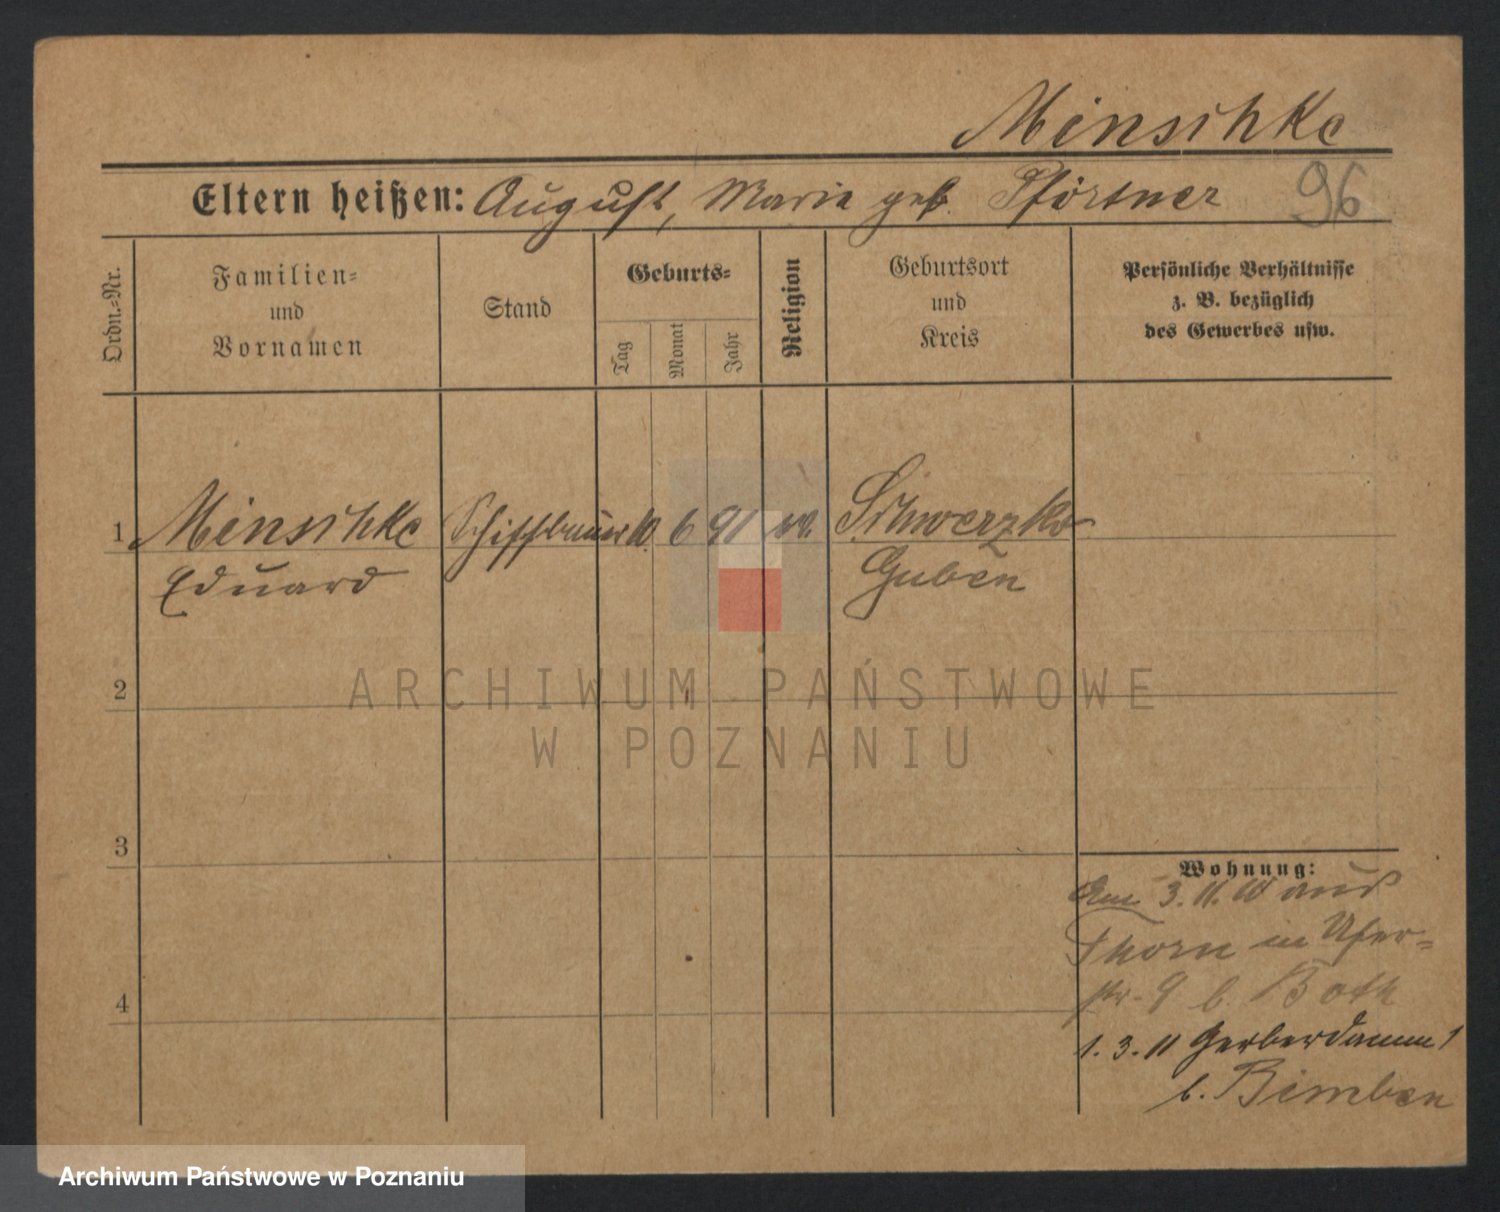 Minschke
Eltern heißen: August, Marie geb. Pförtner 96
Ordn.-Nr.
Familien-
und
Vornamen
Stand
Geburts-
Tag
Monat
Jahr
Religion
Geburtsort
und
Kreis
Persönliche Verhältnisse
z. B. bezüglich
des Gewerbes usw.
1 Minschke Schiffbauer 10. 6 91 Schwerzko
Eduard Guben
ARCHIWUM PAŃSTWOWE
W POZNANIU
2
3
4
Wohnung:
Am 3. 11. 10 aus
Thorn in Ufer-
str. 9 b. Both
1. 3. 11 Gerberdamm 1
b. Bimben
Archiwum Państwowe w Poznaniu